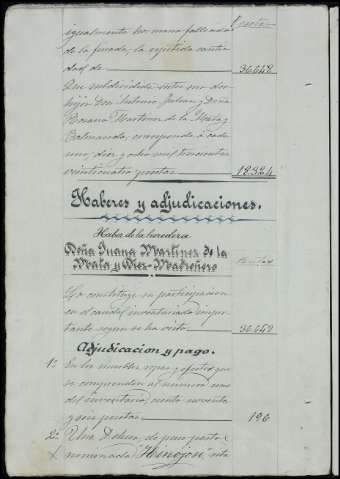 Pesetas
igualmente hermana fallecida
de la finada, la repetida canti-
dad de 36.648
Que subdividida entre sus dos
hijos Don Antonio Julian y Doña
Rosario Martinez de la Mata y
Bobmonda, corresponde á cada
uno, diez y ocho mil trescientas
veinticuatro pesetas 18.324
Haberes y adjudicaciones.
Haber de la heredera
Doña Juana Martinez de la
Mata y Diez-Madroñero
Pesetas
Lo constituye su participacion
en el caudal inventariado impor-
tante segun se ha visto 36.648
Adjudicacion y pago.
1ª En los muebles, ropas y efectos que
se comprenden al numero uno
del inventario, ciento noventa
y seis pesetas 196
2ª Una Dehesa, de puro pasto, de-
nominada "Hinojosi" sita